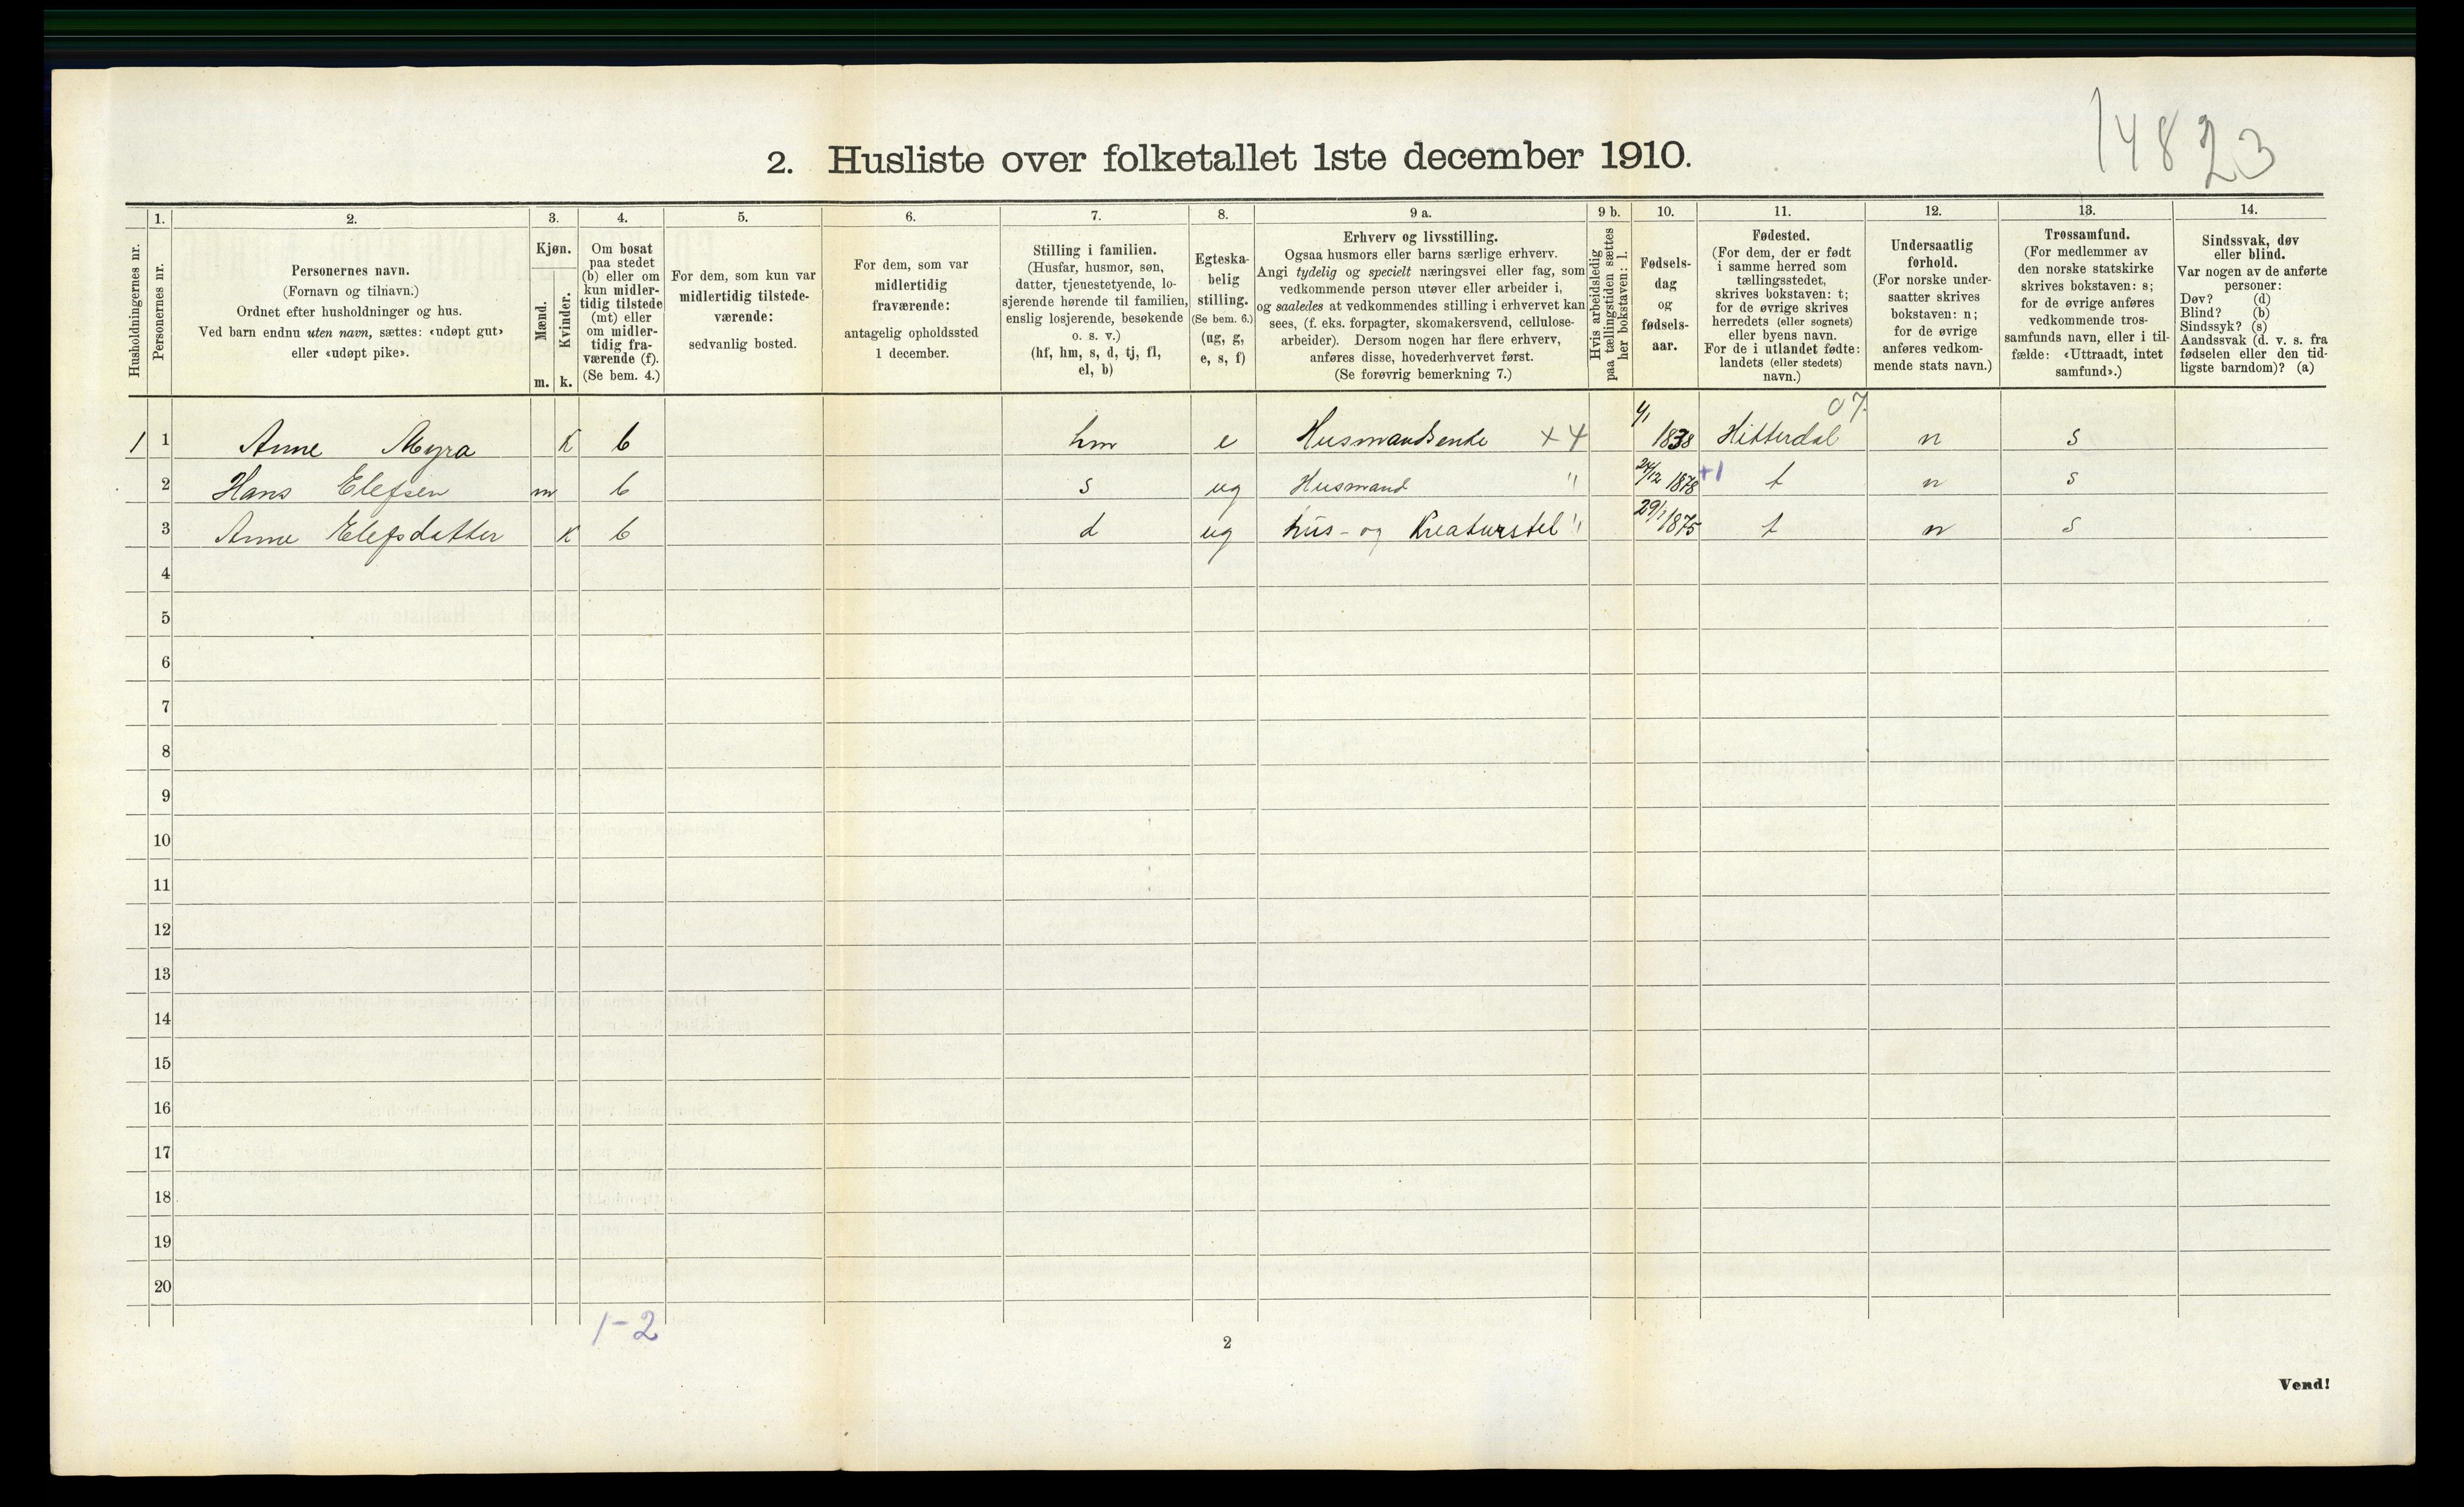 14823
2. Husliste over folketallet 1ste december 1910.
Husholdningernes nr.
1.
Personernes nr.
2.
Personernes navn.
(Fornavn og tilnavn.)
Ordnet efter husholdninger og hus.
Ved barn endnu uten navn, sættes: «udøpt gut»
eller «udøpt pike».
3.
Kjøn.
Mænd.
Kvinder.
m.
k.
4.
Om bosat
paa stedet
(b) eller om
kun midler-
tidig tilstede
(mt) eller
om midler-
tidig fra-
værende (f).
(Se bem. 4.)
5.
For dem, som kun var
midlertidig tilstede-
værende:
sedvanlig bosted.
6.
For dem, som var
midlertidig
fraværende:
antagelig opholdssted
1 december.
7.
Stilling i familien.
(Husfar, husmor, søn,
datter, tjenestetyende, lo-
sjerende hørende til familien,
enslig losjerende, besøkende
o. s. v.)
(hf, hm, s, d, tj, fl,
el, b)
8.
Egteska-
belig
stilling.
(Se bem. 6.)
(ug, g,
e, s, f)
9 a.
Erhverv og livsstilling.
Ogsaa husmors eller barns særlige erhverv.
Angi tydelig og specielt næringsvei eller fag, som
vedkommende person utøver eller arbeider i,
og saaledes at vedkommendes stilling i erhvervet kan
sees, (f. eks. forpagter, skomakersvend, cellulose-
arbeider). Dersom nogen har flere erhverv,
anføres disse, hovederhvervet først.
(Se forøvrig bemerkning 7.)
9 b.
Hvis arbeidsledig
paa tællingstiden sættes
her bokstaven: l.
10.
Fødsels-
dag
og
fødsels-
aar.
11.
Fødested.
(For dem, der er født
i samme herred som
tællingsstedet,
skrives bokstaven: t;
for de øvrige skrives
herredets (eller sognets)
eller byens navn.
For de i utlandet fødte:
landets (eller stedets)
navn.)
12.
Undersaatlig
forhold.
(For norske under-
saatter skrives
bokstaven: n;
for de øvrige
anføres vedkom-
mende stats navn.)
13.
Trossamfund.
(For medlemmer av
den norske statskirke
skrives bokstaven: s;
for de øvrige anføres
vedkommende tros-
samfunds navn, eller i til-
fælde: «Uttraadt, intet
samfund».)
14.
Sindssvak, døv
eller blind.
Var nogen av de anførte
personer:
Døv? (d)
Blind? (b)
Sindssyk? (s)
Aandssvak (d. v. s. fra
fødselen eller den tid-
ligste barndom)? (a)
07.
1 1 Anne Myra K b hm e Husmandsenke x4 1838 Hitterdal n s
2 Hans Elefsen m b s ug Husmand " 24/12 1878 +1 t n s
3 Anne Elefsdatter K b d ug hus- og Kreaturstel " 29/1 1875 t n s
4
5
6
7
8
9
10
11
12
13
14
15
16
17
18
19
20
1-2
2
Vend!